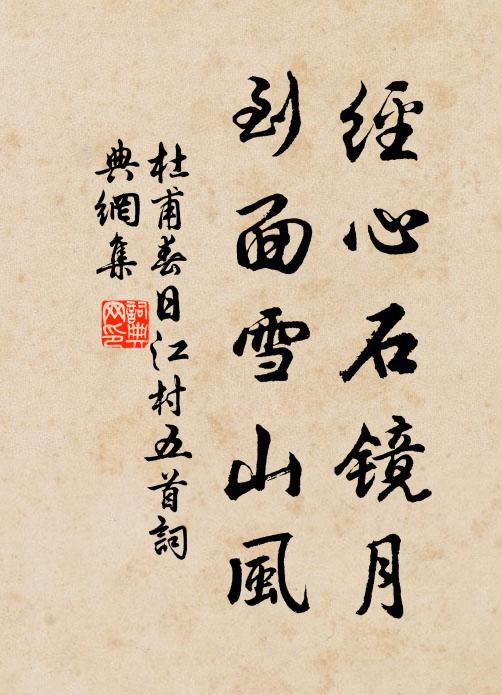 經心石鏡月
到面雪山風
杜甫春日江村五首詞
典網集
詞典
网印